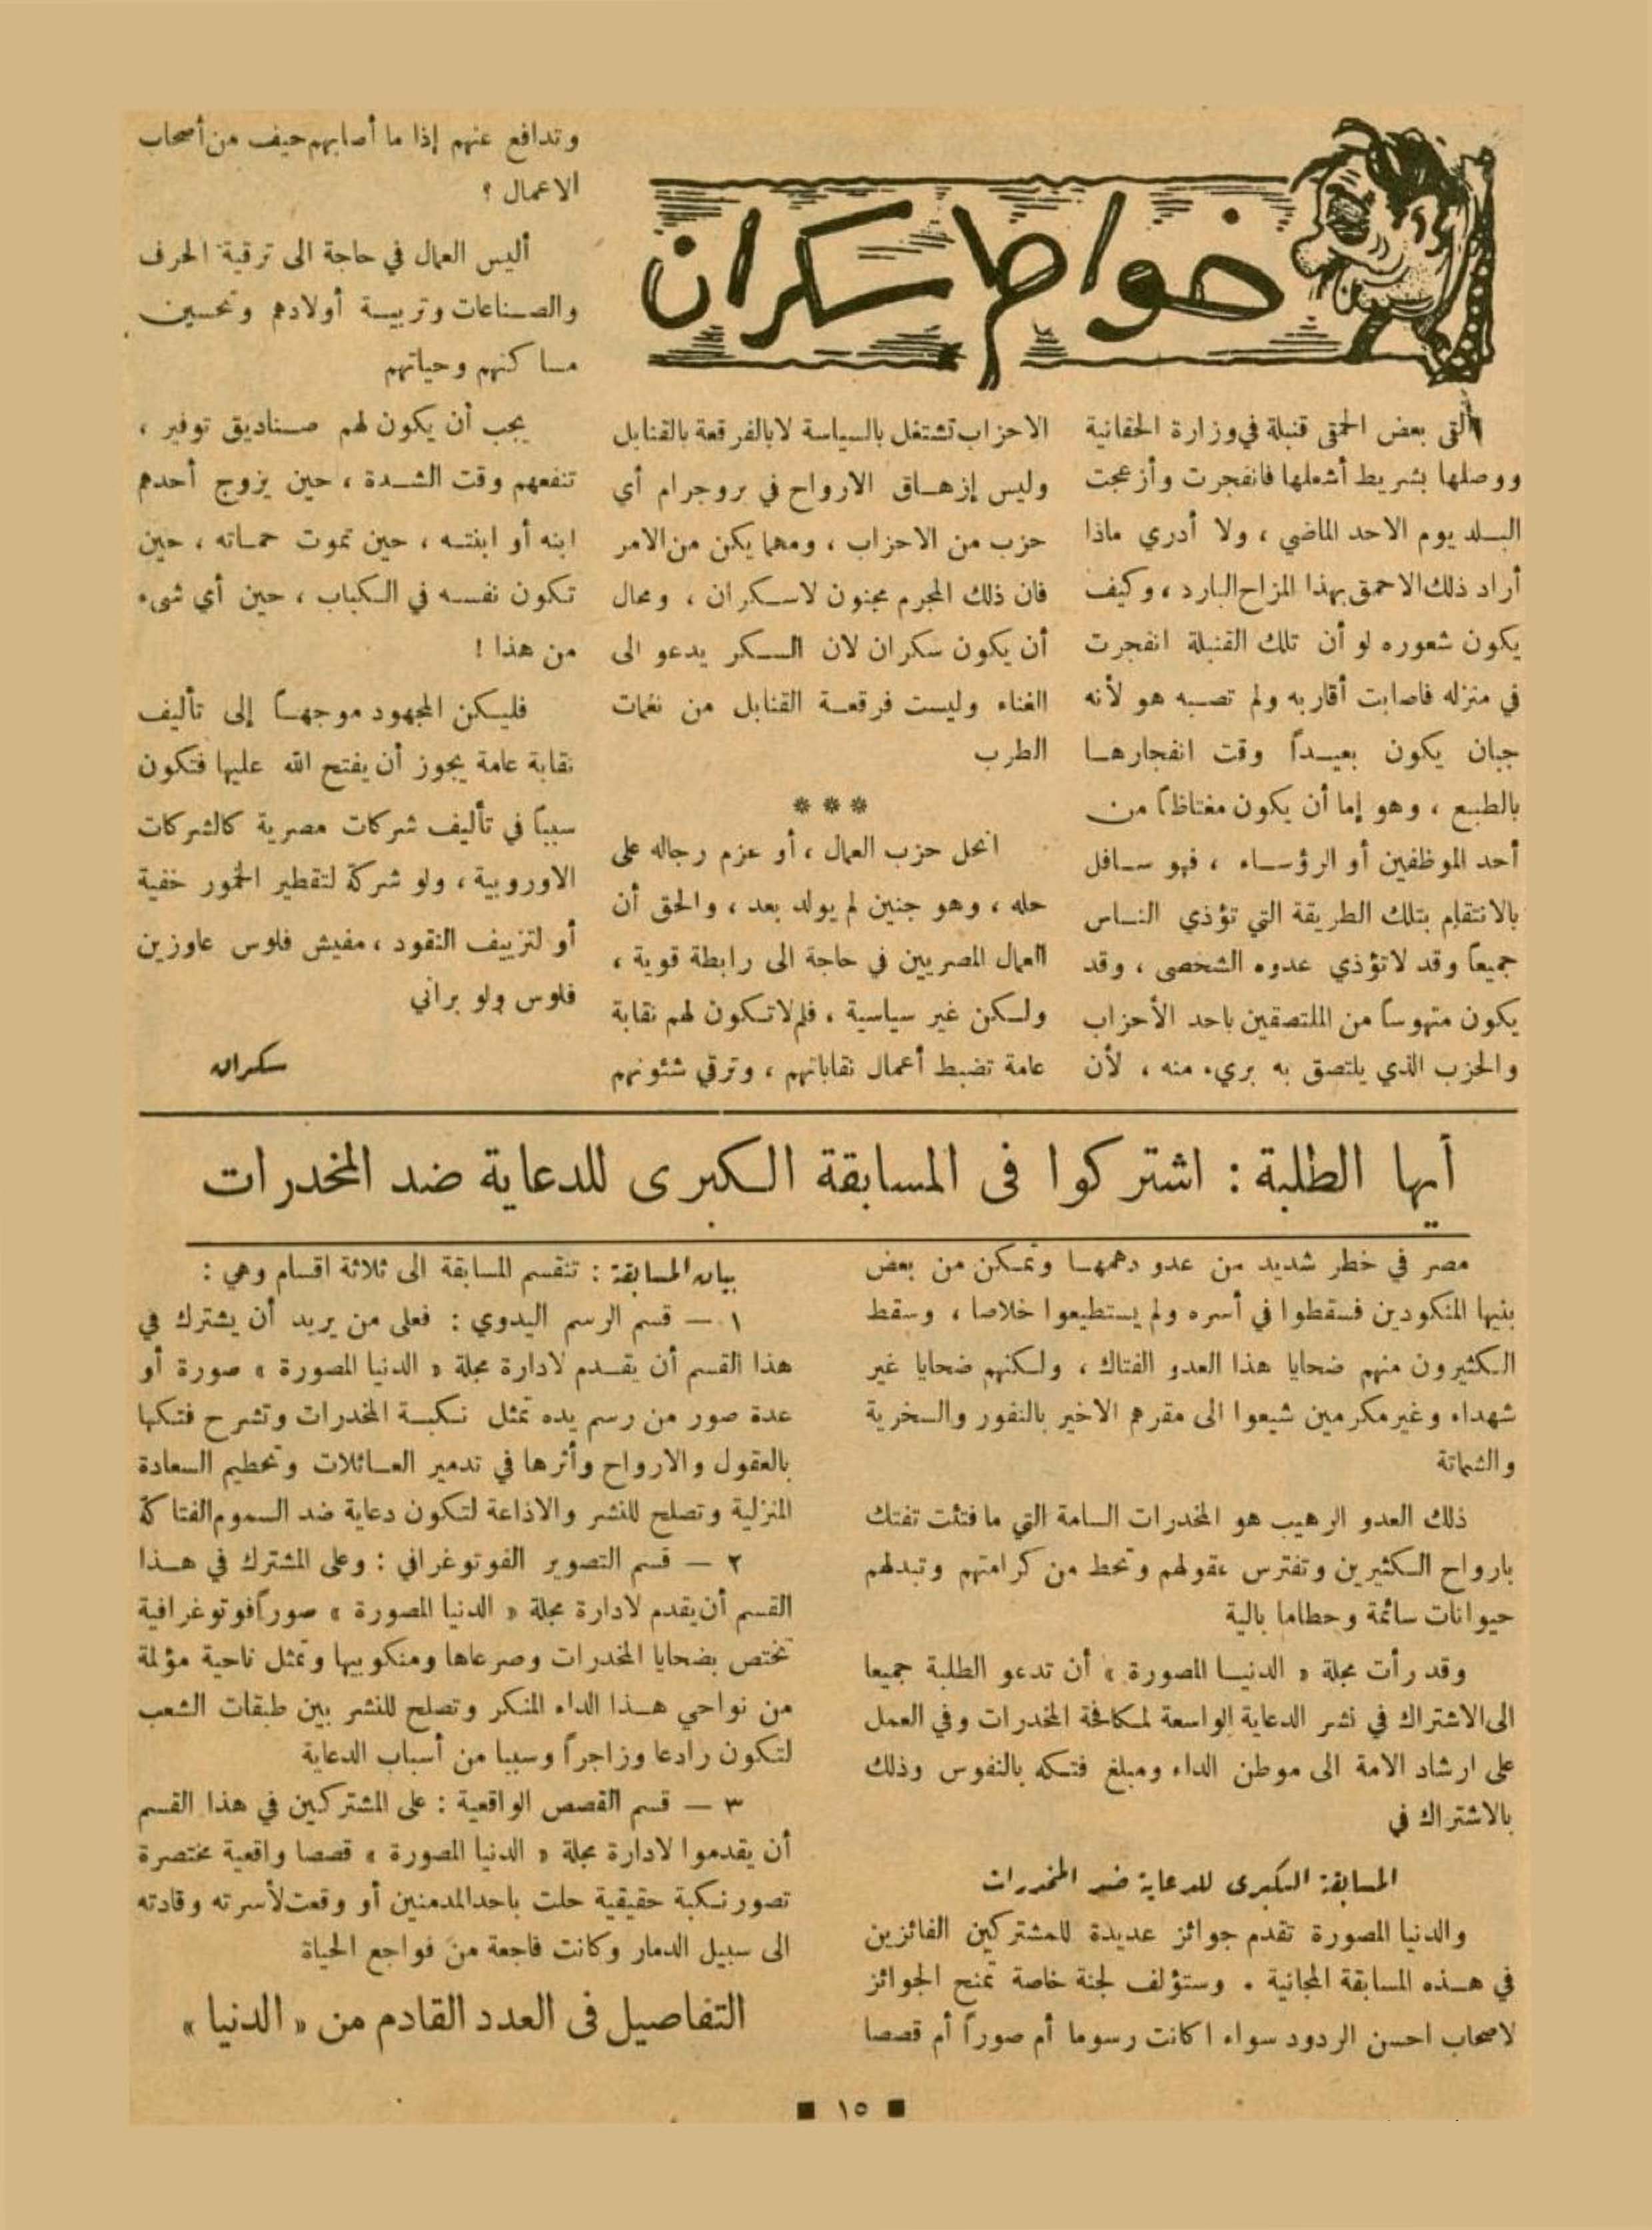 خواطر سكران
ألقى بعض الحمقى قنبلة في وزارة الحقانية
ووصلها بشريط أشعلها فانفجرت وأزعجت
البلد يوم الاحد الماضي ، ولا أدري ماذا
أراد ذلك الاحمق بهذا المزاح البارد ، وكيف
يكون شعوره لو أن تلك القنبلة انفجرت
في منزله فاصابت أقاربه ولم تصبه هو لأنه
جبان يكون بعيداً وقت انفجارها
بالطبع ، وهو إما أن يكون مغتاظاً من
أحد الموظفين أو الرؤساء ، فهو سافل
بالانتقام بتلك الطريقة التي تؤذي الناس
جميعاً وقد لا تؤذي عدوه الشخصى ، وقد
يكون متهوساً من الملتصقين باحد الأحزاب
والحزب الذي يلتصق به بريء منه ، لأن
الاحزاب تشتغل بالسياسة لا بالفرقعة بالقنابل
وليس إزهاق الارواح في بروجرام أي
حزب من الاحزاب ، ومهما يكن من الامر
فان ذلك المجرم مجنون لا سكران ، ومحال
أن يكون سكران لان السكر يدعو الى
الغناء وليست فرقعة القنابل من نغمات
الطرب
***
انحل حزب العمال ، أو عزم رجاله على
حله ، وهو جنين لم يولد بعد ، والحق أن
العمال المصريين في حاجة الى رابطة قوية ،
ولكن غير سياسية ، فلم لا تكون لهم نقابة
عامة تضبط أعمال نقاباتهم ، وترقي شئونهم
وتدافع عنهم إذا ما أصابهم حيف من أصحاب
الاعمال ؟
أليس العمال في حاجة الى ترقية الحرف
والصناعات وتربية أولادهم وتحسين
مساكنهم وحياتهم
يجب أن يكون لهم صناديق توفير ،
تنفعهم وقت الشدة ، حين يزوج أحدهم
ابنه أو ابنته ، حين تموت حماته ، حين
تكون نفسه في الكباب ، حين أي شىء
من هذا !
فليكن المجهود موجهاً إلى تأليف
نقابة عامة يجوز أن يفتح الله عليها فتكون
سبباً في تأليف شركات مصرية كالشركات
الاوروبية ، ولو شركة لتقطير الخمور خفية
أو لتزييف النقود ، مفيش فلوس عاوزين
فلوس ولو براني
سكران
أيها الطلبة : اشتركوا فى المسابقة الكبرى للدعاية ضد المخدرات
مصر في خطر شديد من عدو دهمها وتمكن من بعض
بنيها المنكودين فسقطوا في أسره ولم يستطيعوا خلاصا ، وسقط
الكثيرون منهم ضحايا هذا العدو الفتاك ، ولكنهم ضحايا غير
شهداء وغير مكرمين شيعوا الى مقرهم الاخير بالنفور والسخرية
والشماتة
ذلك العدو الرهيب هو المخدرات السامة التي ما فتئت تفتك
بارواح الكثيرين وتفترس عقولهم وتحط من كرامتهم وتبدلهم
حيوانات سائمة وحطاما بالية
وقد رأت مجلة « الدنيا المصورة » أن تدعو الطلبة جميعا
الى الاشتراك في نشر الدعاية الواسعة لمكافحة المخدرات وفي العمل
على ارشاد الامة الى موطن الداء ومبلغ فتكه بالنفوس وذلك
بالاشتراك في
المسابقة الكبرى للدعاية ضد المخدرات
والدنيا المصورة تقدم جوائز عديدة للمشتركين الفائزين
في هذه المسابقة المجانية . وستؤلف لجنة خاصة تمنح الجوائز
لاصحاب احسن الردود سواء اكانت رسوما أم صوراً أم قصصا
بيان المسابقة : تنقسم المسابقة الى ثلاثة اقسام وهي :
١ — قسم الرسم اليدوي : فعلى من يريد أن يشترك في
هذا القسم أن يقدم لادارة مجلة « الدنيا المصورة » صورة أو
عدة صور من رسم يده تمثل نكبة المخدرات وتشرح فتكها
بالعقول والارواح وأثرها في تدمير العائلات وتحطيم السعادة
المنزلية وتصلح للنشر والاذاعة لتكون دعاية ضد السموم الفتاكة
٢ — قسم التصوير الفوتوغرافي : وعلى المشترك في هذا
القسم أن يقدم لادارة مجلة « الدنيا المصورة » صوراً فوتوغرافية
تختص بضحايا المخدرات وصرعاها ومنكوبيها وتمثل ناحية مؤلمة
من نواحي هذا الداء المنكر وتصلح للنشر بين طبقات الشعب
لتكون رادعا وزاجراً وسببا من أسباب الدعاية
٣ — قسم القصص الواقعية : على المشتركين في هذا القسم
أن يقدموا لادارة مجلة « الدنيا المصورة » قصصا واقعية مختصرة
تصور نكبة حقيقية حلت باحد المدمنين أو وقعت لأسرته وقادته
الى سبيل الدمار وكانت فاجعة من فواجع الحياة
التفاصيل فى العدد القادم من « الدنيا »
■ ١٥ ■